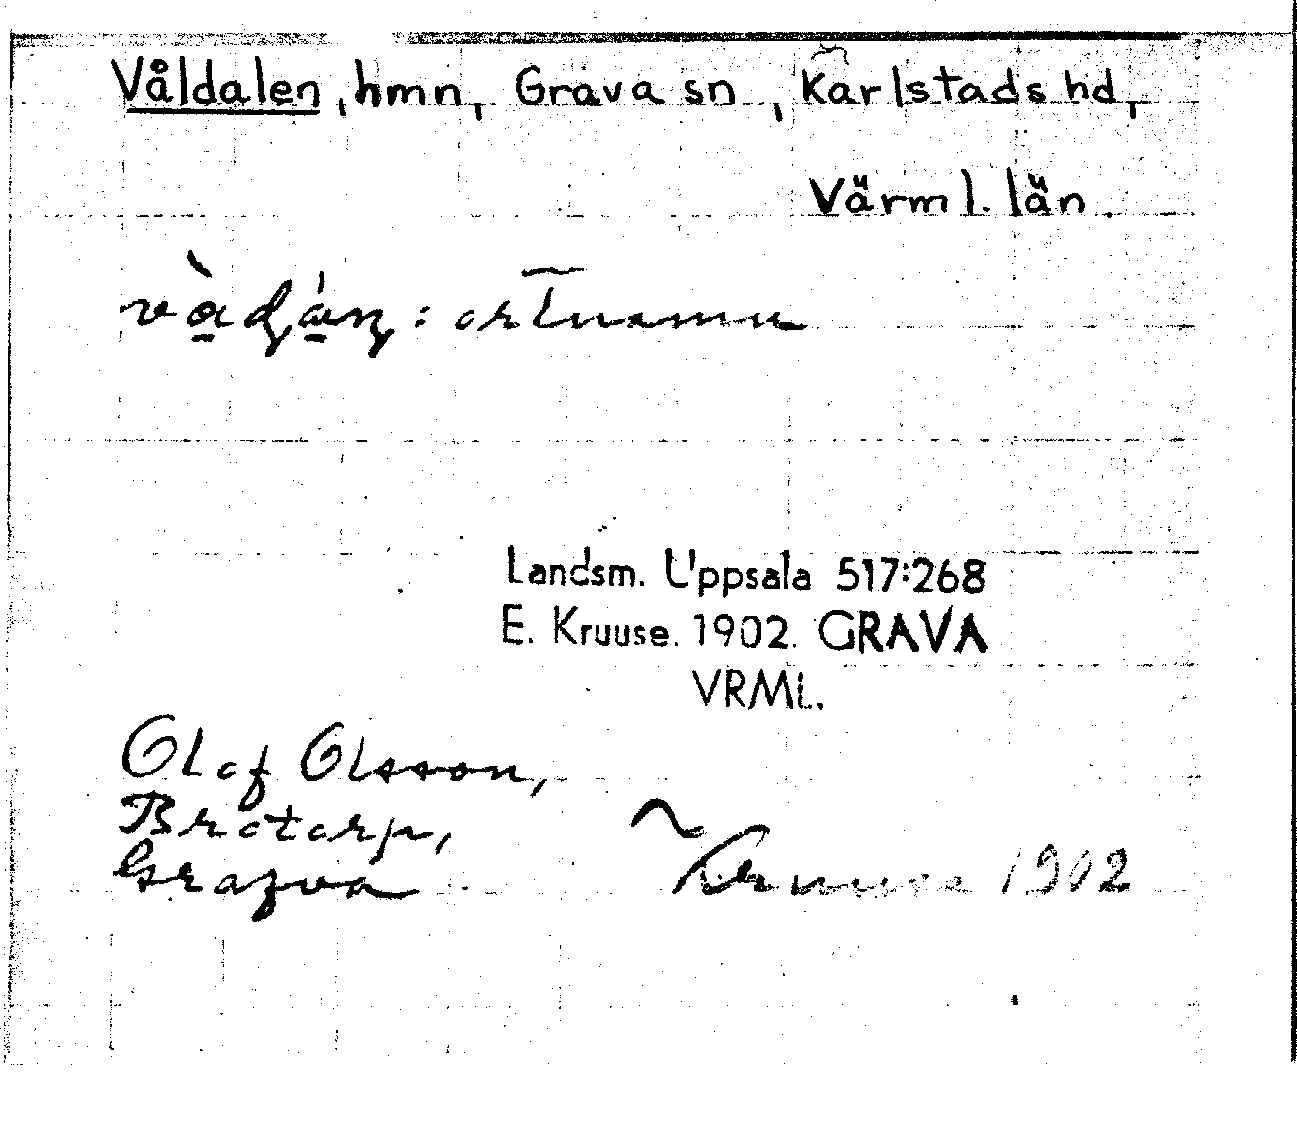 Våldalen, hmn, Grava sn, Karlstads hd,
Värml. län.
: ortnamn
Landsm. Uppsala 517:268
E. Kruuse. 1902. GRAVA
VRML.
Olof Olsson,
Brotorp,
Grafva
Kruuse 1902